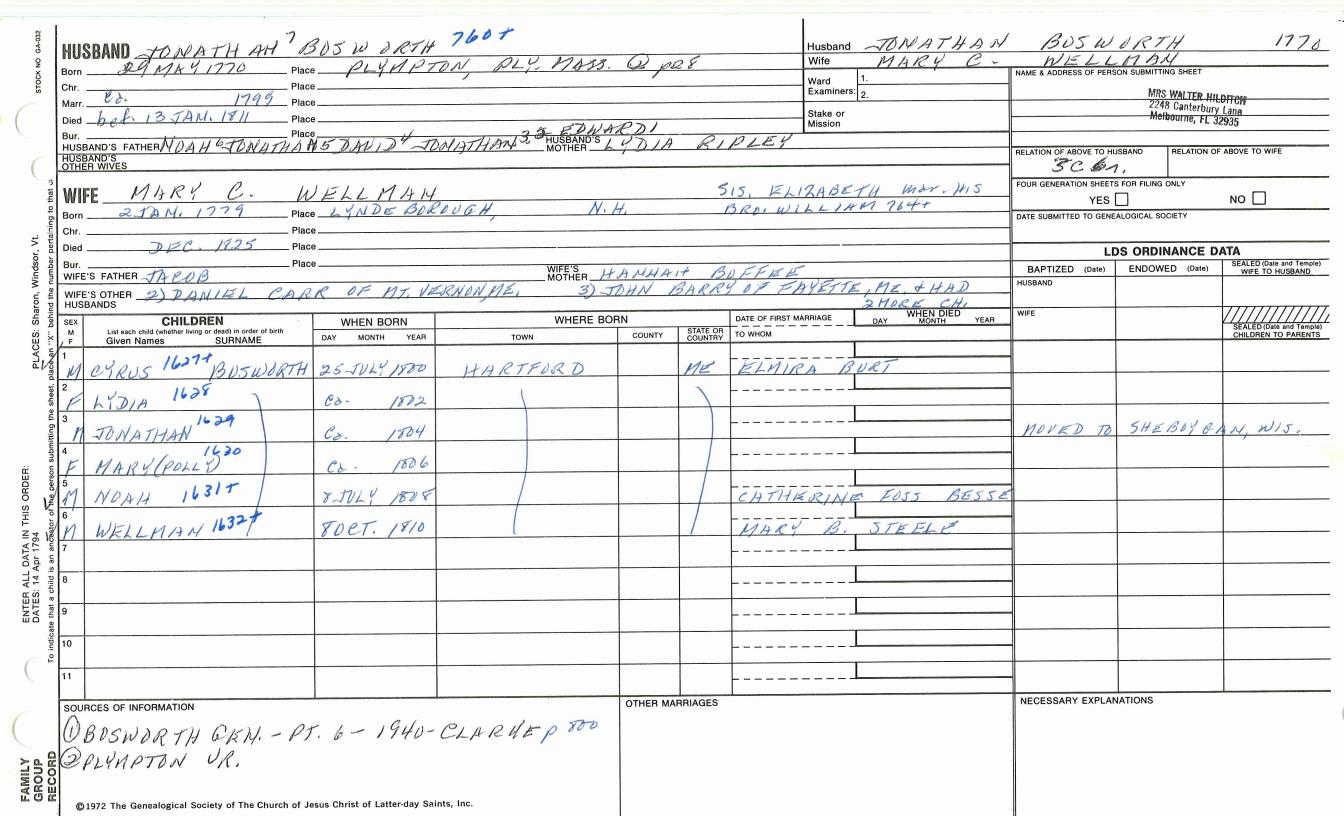 STOCK NO GA-032
PLACES: Sharon, Windsor, Vt.
ENTER ALL DATA IN THIS ORDER:
DATES: 14 Apr 1794
To indicate that a child is an ancestor of the person submitting the sheet, place an "X" behind the number pertaining to that
FAMILY
GROUP
RECORD
HUSBAND JONATHAN 7 BOSWORTH 760+
Born 29 MAY 1770 Place PLYMPTON, PLY. MASS. ② p28
Chr. Place
Marr. Ca. 1799 Place
Died bef. 13 JAN. 1811 Place
Bur. Place
HUSBAND'S FATHER NOAH 6 JONATHAN 5 DAVID 4 JONATHAN 3 2 EDWARD 1 HUSBAND'S MOTHER LYDIA RIPLEY
HUSBAND'S OTHER WIVES
Husband JONATHAN BOSWORTH 1770
Wife MARY C. WELLMAN
Ward Examiners: 1.
2.
Stake or Mission
NAME & ADDRESS OF PERSON SUBMITTING SHEET
MRS WALTER HILDITCH
2248 Canterbury Lane
Melbourne, FL 32935
RELATION OF ABOVE TO HUSBAND RELATION OF ABOVE TO WIFE
3C 6r.
FOUR GENERATION SHEETS FOR FILING ONLY
YES NO
DATE SUBMITTED TO GENEALOGICAL SOCIETY
WIFE MARY C. WELLMAN SIS. ELIZABETH mar. HIS
Born 2 JAN. 1779 Place LYNDEBOROUGH, N.H. BRO. WILLIAM 764+
Chr. Place
Died DEC. 1825 Place
Bur. Place
WIFE'S FATHER JACOB WIFE'S MOTHER HANNAH BOFFEE
WIFE'S OTHER HUSBANDS 2) DANIEL CARR OF MT. VERNON, ME. 3) JOHN BARRY OF FAYETTE, ME. & HAD
2 MORE CH.
LDS ORDINANCE DATA
BAPTIZED (Date) ENDOWED (Date) SEALED (Date and Temple) WIFE TO HUSBAND
HUSBAND
WIFE
SEALED (Date and Temple) CHILDREN TO PARENTS
SEX M F CHILDREN WHEN BORN WHERE BORN DATE OF FIRST MARRIAGE WHEN DIED
List each child (whether living or dead) in order of birth
Given Names SURNAME DAY MONTH YEAR TOWN COUNTY STATE OR COUNTRY TO WHOM DAY MONTH YEAR
1 M CYRUS 1627+ BOSWORTH 25 JULY 1800 HARTFORD ME ELMIRA BURT
2 F LYDIA 1628 Ca. 1802
3 M JONATHAN 1629 Ca. 1804 MOVED TO SHEBOYGAN, WIS.
4 F MARY (POLLY) 1630 Ca. 1806
5 M NOAH 1631+ 8 JULY 1808 CATHERINE FOSS BESSE
6 M WELLMAN 1632+ 8 OCT. 1810 MARY B. STEELE
7
8
9
10
11
SOURCES OF INFORMATION
① BOSWORTH GEN. - PT. 6 - 1940 - CLARKE p 800
② PLYMPTON VR.
OTHER MARRIAGES
NECESSARY EXPLANATIONS
©1972 The Genealogical Society of The Church of Jesus Christ of Latter-day Saints, Inc.